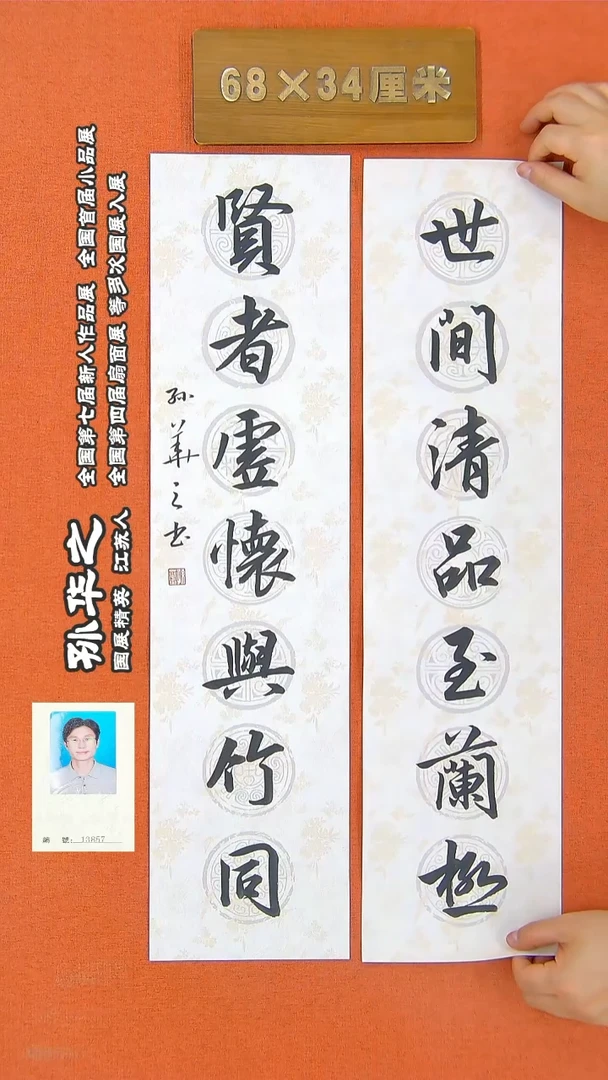 68×34厘米
世間清品至蘭極
賢者虛懷與竹同
孙華之书
孙华之
国展精英 江苏人
全国第七届新人作品展 全国首届小品展
全国第四届扇面展 等多次国展入展
編 號: 13857